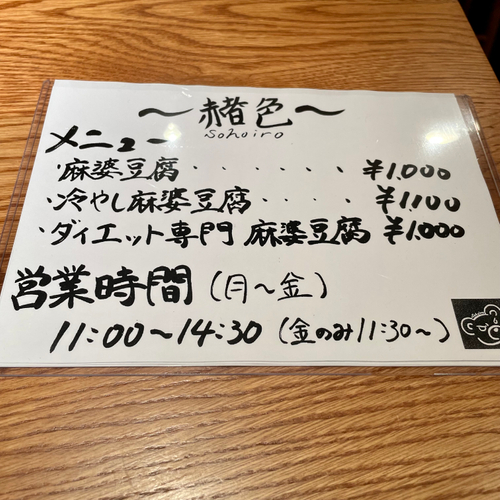 ～赭色～
sohoiro
メニュー
・麻婆豆腐・・・・・・¥1,000
・冷やし麻婆豆腐・・・・¥1,100
・ダイエット専門 麻婆豆腐 ¥1,000
営業時間(月～金)
11:00～14:30(金のみ11:30～)